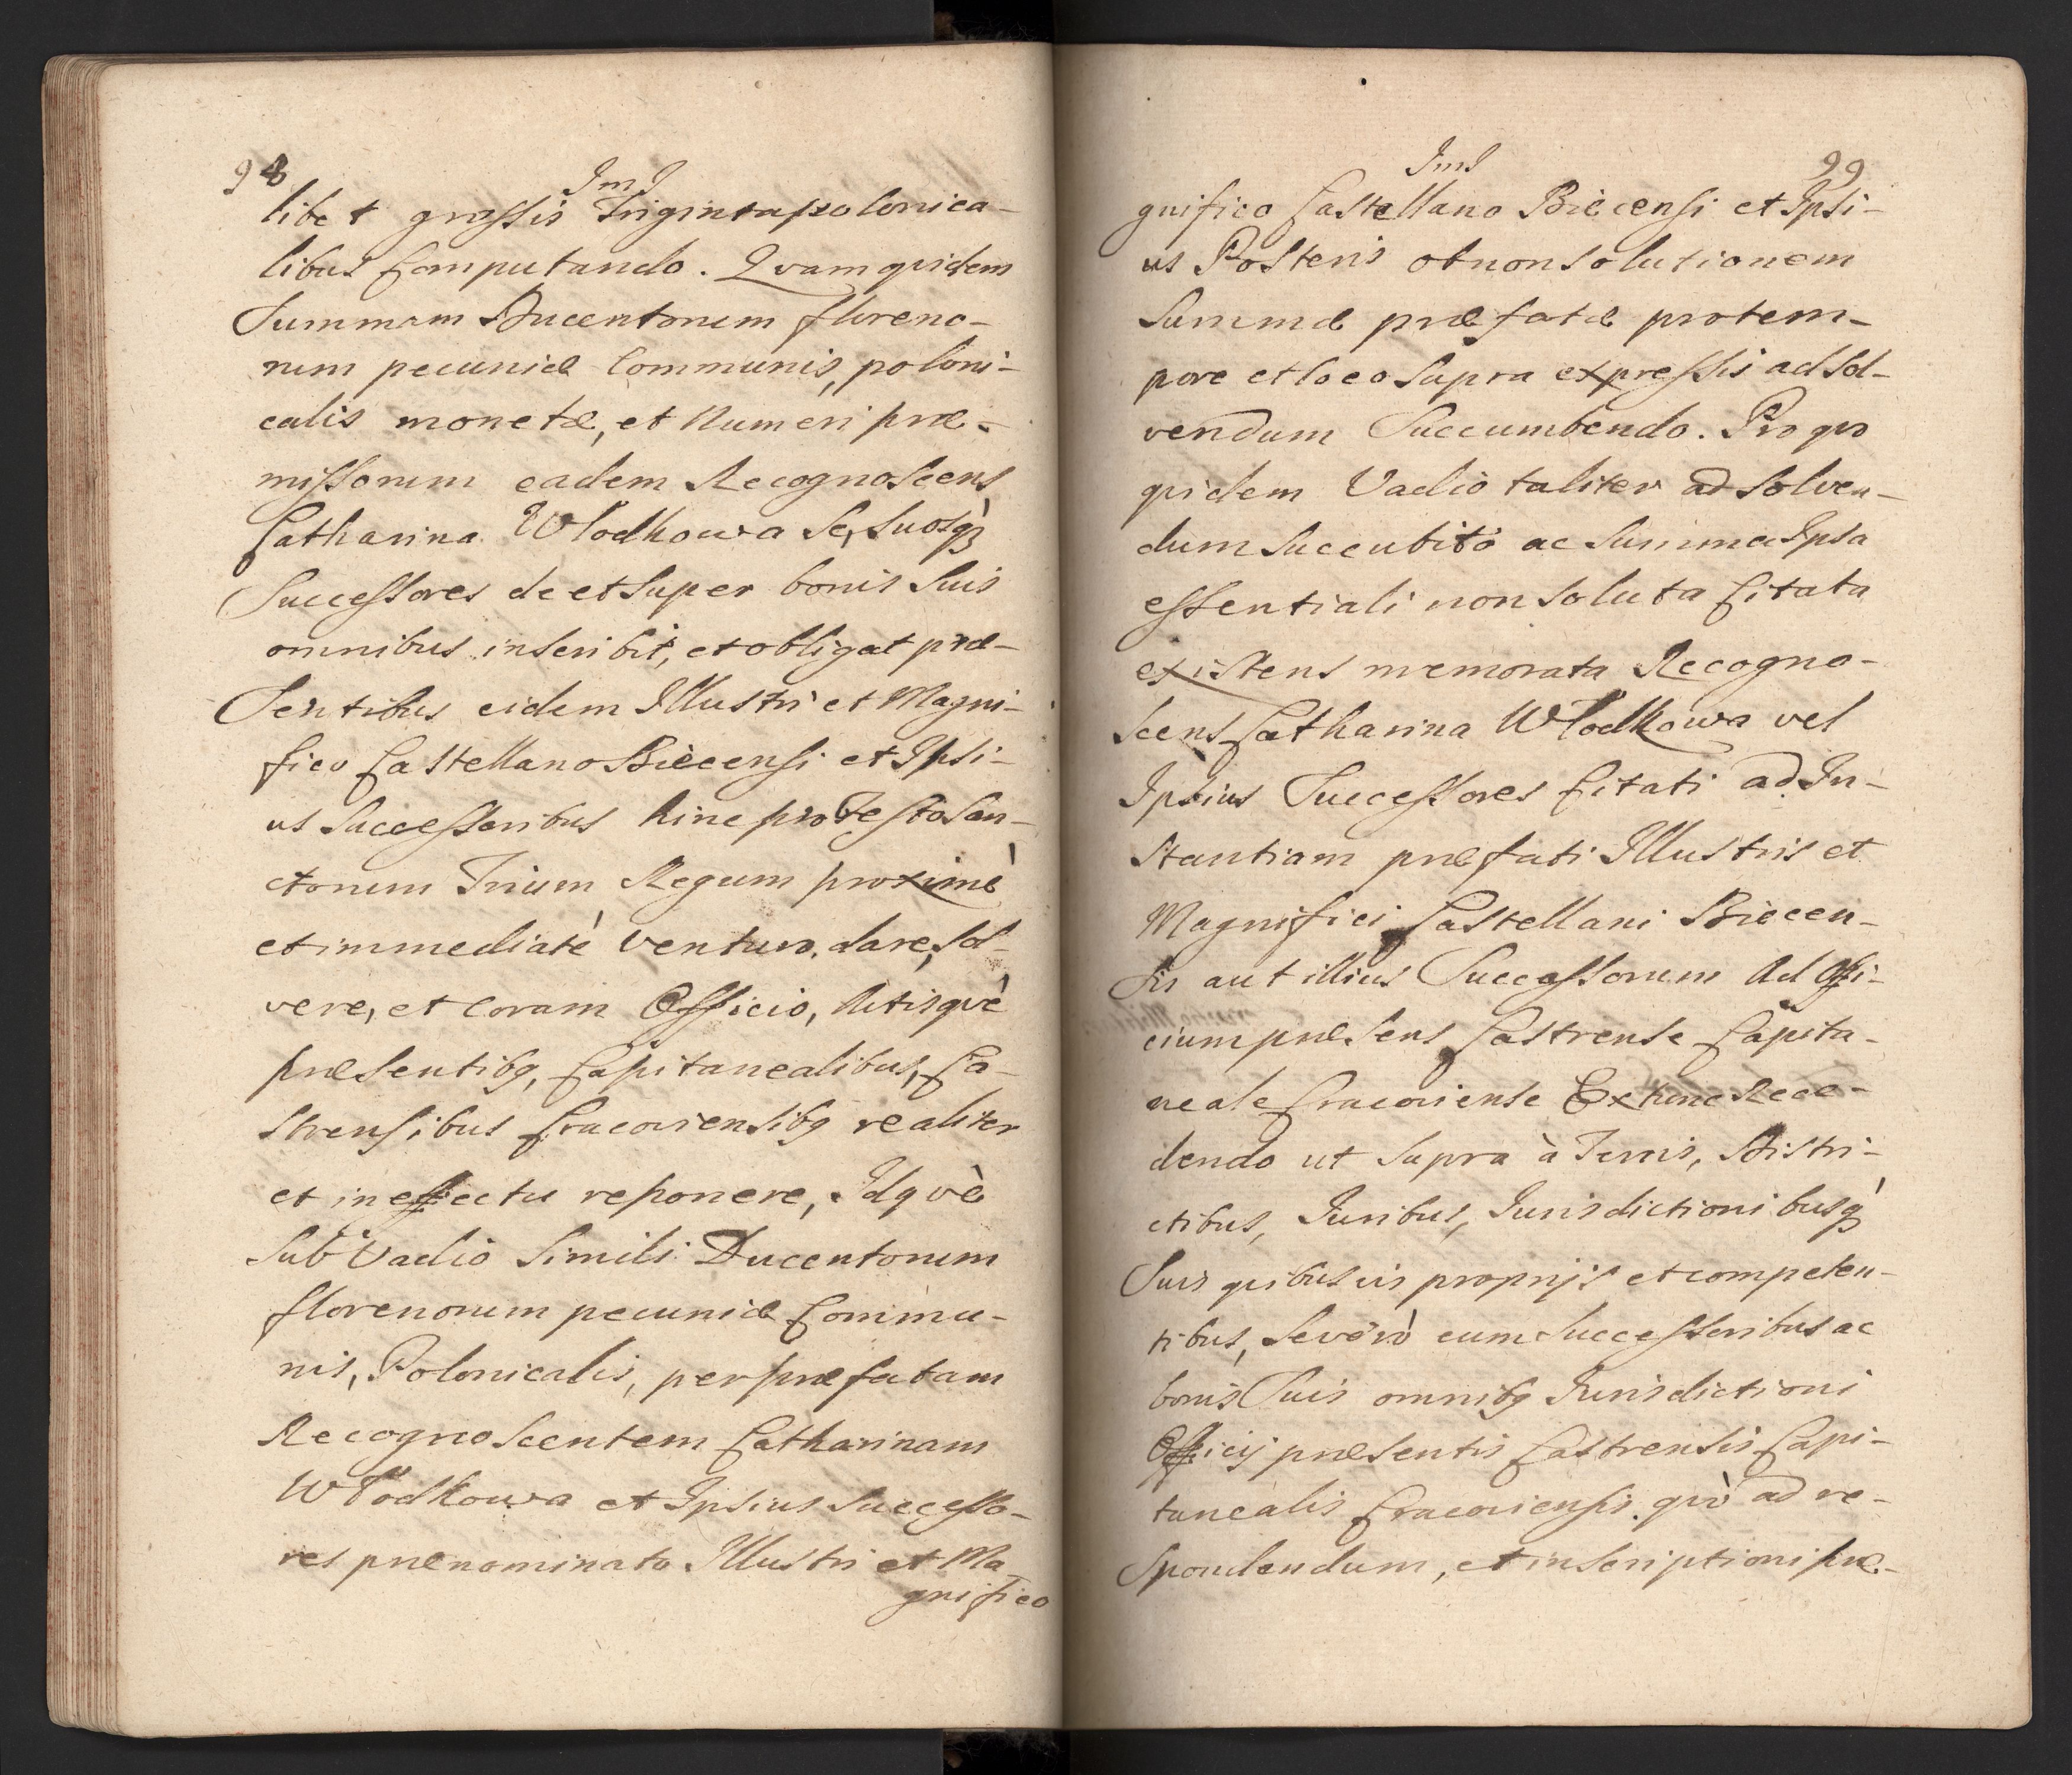 98
Jms
libet grossis Triginta polonica-
libus Computando. Qvam qvidem
Summam Ducentorum floreno-
rum pecuniæ Communis, poloni-
calis monetæ, et Numeri præ-
missorum eadem Recognoscens
Catharina Włodkowa Se, Suosq₃
Successores de et Super bonis Suis
omnibus inscribit, et obligat præ-
Sentibus eidem Illustri et Magni-
fico Castellano Biecensi et Ipsi-
us Successoribus hinc pro Festo San-
ctorum Trium Regum proximè
et immediatè venturo, dare, Sol-
vere, et coram Officio, Actisqvè
præsentibq, Capitanealibus, Ca-
strensibus Cracoviensibq realiter
et in effectu reponere, Idqvè
Sub Vadiò Simili Ducentorum
florenorum pecuniæ Commu-
nis, Polonicalis, per præfatam
Recognoscentem Catharinam
Włodkowa et Ipsius Successo-
res prænominato Illustri et Ma
gnifico
Jms
99
gnifico Castellano Biecensi et Ipsi-
us Posteris ob non Solutionem
Summæ præfatæ pro tem-
pore et loco Supra expressis ad Sol-
vendum Succumbendo. Pro qvo
qvidem Vadiò taliter ad Solven-
dum Succubitò ac Summa Ipsa
essentiali non Soluta Citata
existens memorata Recogno-
Scens Catharina Włodkowa vel
Ipsius Successores Citati ad In-
Stantiam præfati Illustris et
Magnifici Castellani Biecen-
Sis aut illius Successorum Ad Offi-
cium præsens Castrense Capita-
neale Cracoviense Exhinc Rece-
dendo ut Supra à Terris, Distri-
ctibus, Juribus, Jurisdictionibusq
Suis qvibusvis proprijs et competen-
tibus, Se verò cum Successoribus ac
bonis Suis omnibq Jurisdictioni
Officij præsentis Castrensis Capi-
tanealis Cracoviensis qvò ad re-
Spondendum, et inscriptioni præ-